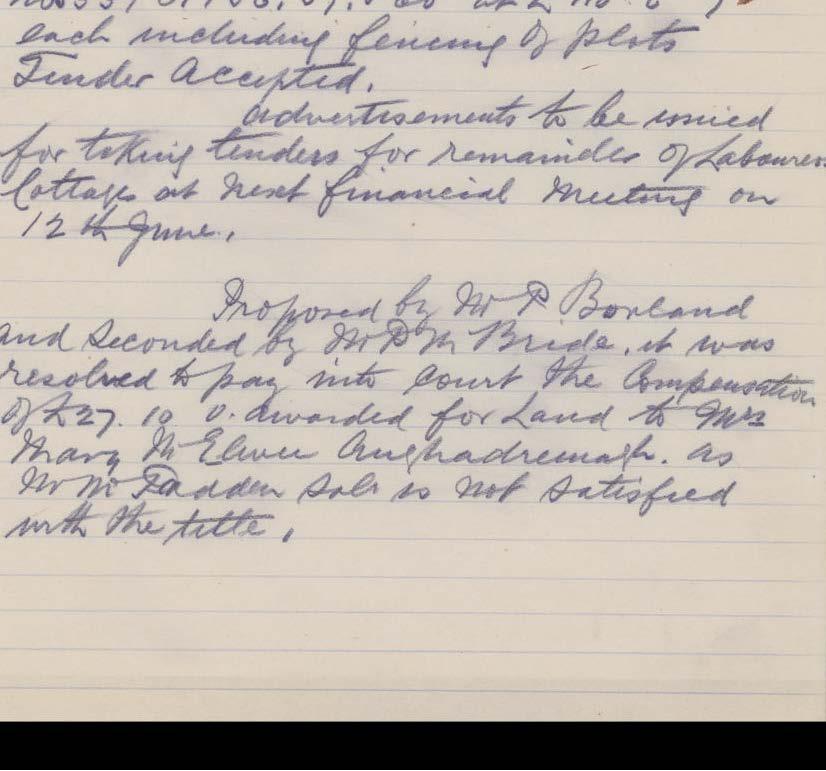 each including fencing of plots
Tender Accepted.
advertisements to be issued
for taking tenders for remainder of Labourers
Cottages at next financial Meeting on
12th June.
Proposed by Mr P Borland
and Seconded by Mr P Mc Bride. it was
resolved to pay into Court the Compensation
of £27. 10. 0. awarded for Land to Mrs
Mary McElwee as
Mr McFadden Solr is not satisfied
with the title.